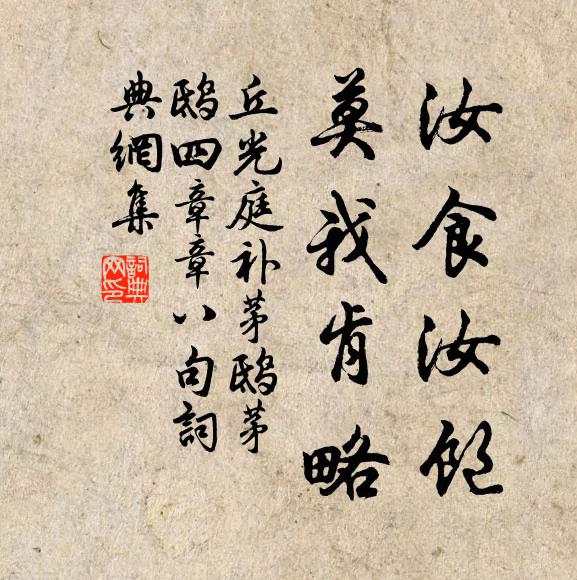 汝食汝飽
莫我肯略
丘光庭补茅鴟茅
鴟四章章八句詞
典網集
詞典网印